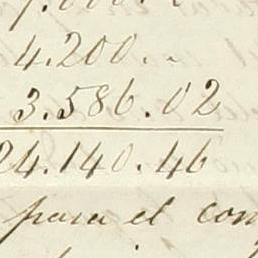 4.200. ..
3.586.02
24.140.46
para el con